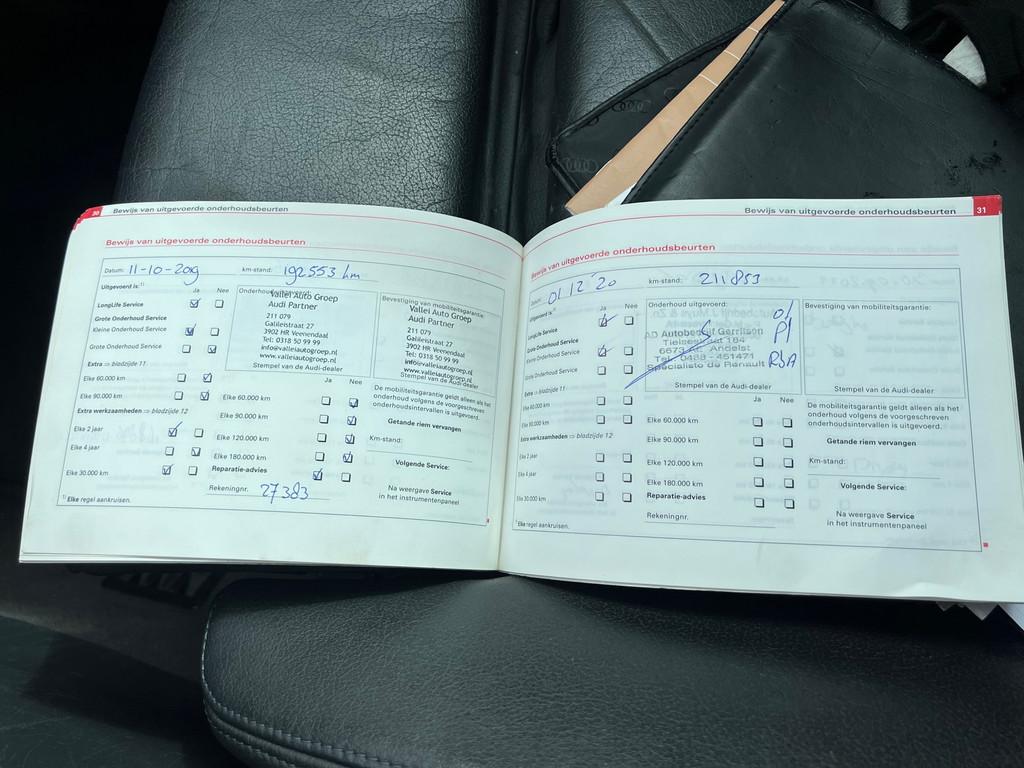 30 Bewijs van uitgevoerde onderhoudsbeurten
Bewijs van uitgevoerde onderhoudsbeurten
Datum: 11-10-2019 km-stand: 192553 km
Uitgevoerd is:¹⁾
Ja Nee
LongLife Service
Grote Onderhoud Service
Kleine Onderhoud Service
Grote Onderhoud Service
Extra ⇒ bladzijde 11
Elke 60.000 km
Elke 90.000 km
Extra werkzaamheden ⇒ bladzijde 12
Elke 2 jaar
Elke 4 jaar
Elke 30.000 km
¹⁾ Elke regel aankruisen.
Vallei Auto Groep
Audi Partner
211 079
Galileistraat 27
3902 HR Veenendaal
Tel: 0318 50 99 99
info@valleiautogroep.nl
www.valleiautogroep.nl
Stempel van de Audi-dealer
Ja Nee
Elke 60.000 km
Elke 90.000 km
Elke 120.000 km
Elke 180.000 km
Reparatie-advies
Rekeningnr. 27383
Bevestiging van mobiliteitsgarantie:
Vallei Auto Groep
Audi Partner
211 079
Galileistraat 27
3902 HR Veenendaal
Tel: 0318 50 99 99
info@valleiautogroep.nl
www.valleiautogroep.nl
Stempel van de Audi-dealer
De mobiliteitsgarantie geldt alleen als het
onderhoud volgens de voorgeschreven
onderhoudsintervallen is uitgevoerd.
Getande riem vervangen
Km-stand:
Volgende Service:
Na weergave Service
in het instrumentenpaneel
Bewijs van uitgevoerde onderhoudsbeurten 31
Bewijs van uitgevoerde onderhoudsbeurten
Datum: 01 12 '20 km-stand: 211853
Uitgevoerd is:¹⁾
Ja Nee
LongLife Service
Kleine Onderhoud Service
Grote Onderhoud Service
Extra ⇒ bladzijde 11
Elke 60.000 km
Elke 90.000 km
Extra werkzaamheden ⇒ bladzijde 12
Elke 2 jaar
Elke 4 jaar
Elke 30.000 km
¹⁾ Elke regel aankruisen.
Onderhoud uitgevoerd:
AD Autobedrijf Gerritsen
Tielsestraat 184
Andelst
Tel. 0488 - 451471
Specialiste de Renault
Stempel van de Audi-dealer
Ja Nee
Elke 60.000 km
Elke 90.000 km
Elke 120.000 km
Elke 180.000 km
Reparatie-advies
Rekeningnr.
Bevestiging van mobiliteitsgarantie:
Stempel van de Audi-dealer
De mobiliteitsgarantie geldt alleen als het
onderhoud volgens de voorgeschreven
onderhoudsintervallen is uitgevoerd.
Getande riem vervangen
Km-stand:
Volgende Service:
Na weergave Service
in het instrumentenpaneel